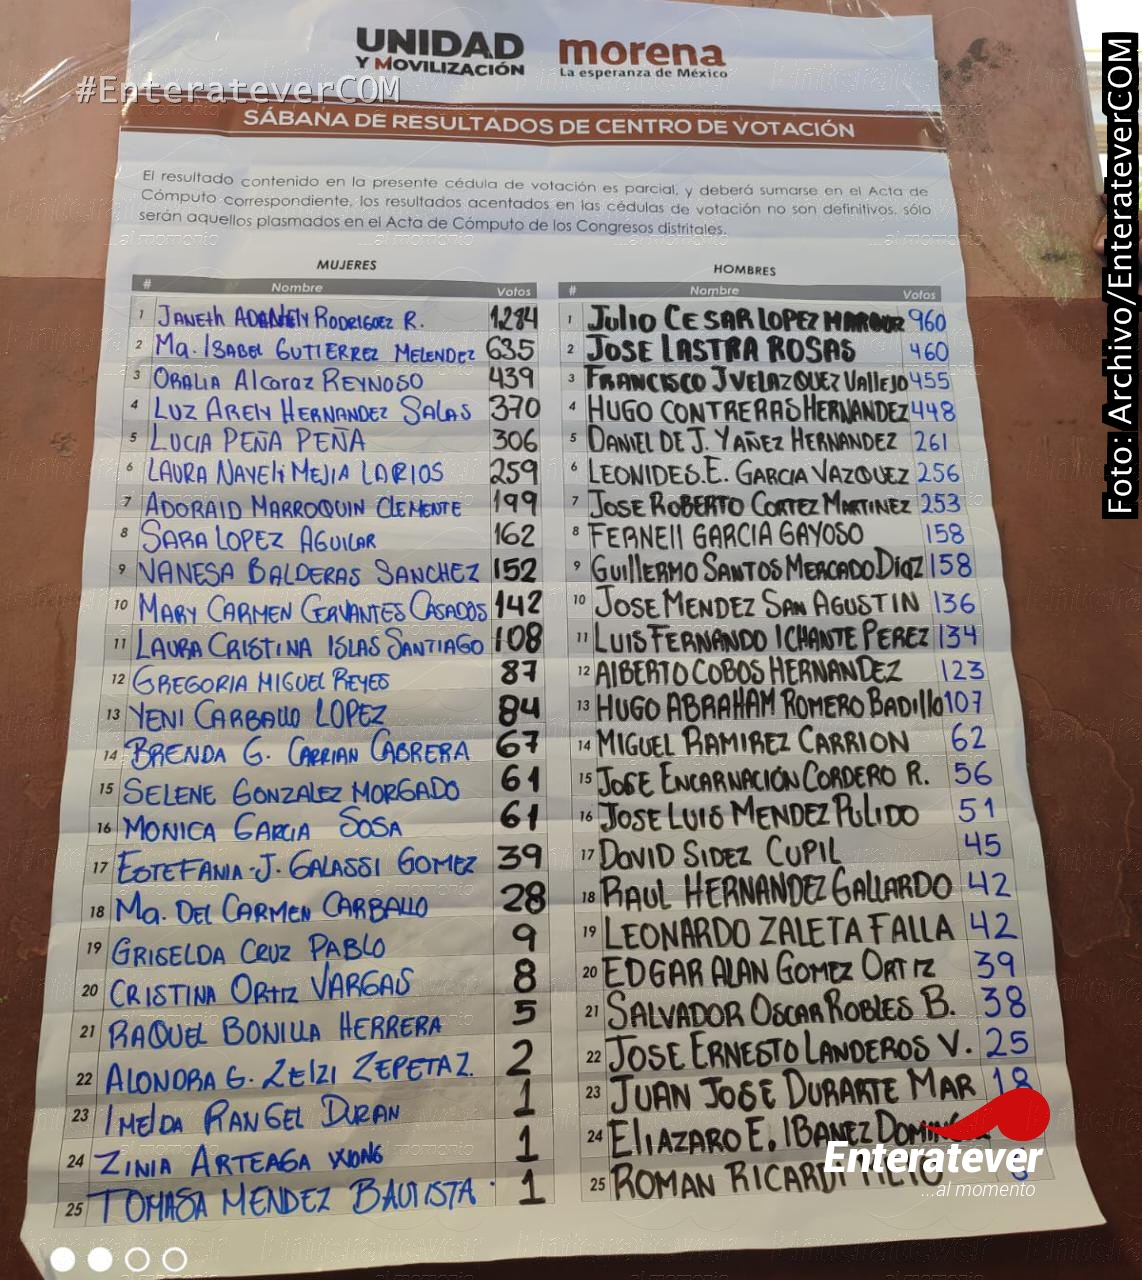 UNIDAD
Y MOVILIZACIÓN
morena
La esperanza de México
#EnterateverCOM
SÁBANA DE RESULTADOS DE CENTRO DE VOTACIÓN
El resultado contenido en la presente cédula de votación es parcial, y deberá sumarse en el Acta de
Cómputo correspondiente, los resultados acentados en las cédulas de votación no son definitivos, sólo
serán aquellos plasmados en el Acta de Cómputo de los Congresos distritales.
MUJERES
# Nombre Votos
1 JANETH RODRIGUEZ R. 1284
2 Ma. ISABEL GUTIERREZ MELENDEZ 635
3 ORALIA Alcaraz REYNOSO 439
4 LUZ ARELY HERNANDEZ SALAS 370
5 LUCIA PEÑA PEÑA 306
6 LAURA NAYELi MEJIA LARIOS 259
7 ADORAID MARROQUIN CLEMENTE 199
8 SARA LOPEZ AGUILAR 162
9 VANESA BALDERAS SANCHEZ 152
10 MARY CARMEN CERVANTES CASADOS 142
11 LAURA CRISTINA ISLAS SANTIAGO 108
12 GREGORIA MIGUEL REYES 87
13 YENI CARBALLO LOPEZ 84
14 BRENDA G. CARRIAN CABRERA 67
15 SELENE GONZALEZ MORGADO 61
16 MONICA GARCIA SOSA 61
17 ESTEFANIA J. GALASSI GOMEZ 39
18 Ma. DEL CARMEN CARBALLO 28
19 GRISELDA CRUZ PABLO 9
20 CRISTINA ORTIZ VARGAS 8
21 RAQUEL BONILLA HERRERA 5
22 ALONDRA G. ZEIZI ZEPETA Z. 2
23 IMELDA RANGEL DURAN 1
24 ZINIA ARTEAGA WONG 1
25 TOMASA MENDEZ BAUTISTA 1
HOMBRES
# Nombre Votos
1 Julio CESAR LOPEZ 960
2 JOSE LASTRA ROSAS 460
3 FRANCISCO J VELAZQUEZ Vallejo 455
4 HUGO CONTRERAS HERNANDEZ 448
5 DANIEL DE J. YAÑEZ HERNANDEZ 261
6 LEONIDES E. GARCIA VAZQUEZ 256
7 JOSE ROBERTO CORTEZ MARTINEZ 253
8 FERNEll GARCIA GAYOSO 158
9 GUIllERMO SANTOS MERCADO Díaz 158
10 JOSE MENDEZ SAN AGUSTIN 136
11 LUIS FERNANDO ICHANTE PEREZ 134
12 AlBERTO COBOS HERNANDEZ 123
13 HUGO ABRAHAM ROMERO Badillo 107
14 MIGUEL RAMIREZ CARRION 62
15 JOSE ENCARNACIÓN CORDERO R. 56
16 JOSE LUIS MENDEZ PULIDO 51
17 DAVID SIDEZ CUPIL 45
18 RAUL HERNANDEZ GALLARDO 42
19 LEONARDO ZALETA FALLA 42
20 EDGAR ALAN GOMEZ ORTIZ 39
21 SALVADOR OSCAR ROBLES B. 38
22 JOSE ERNESTO LANDEROS V. 25
23 JUAN JOSE DURARTE MAR 18
24 EliAZARO E. IBANEZ
25 ROMAN
Enteratever
...al momento
Foto: Archivo/EnterateverCOM